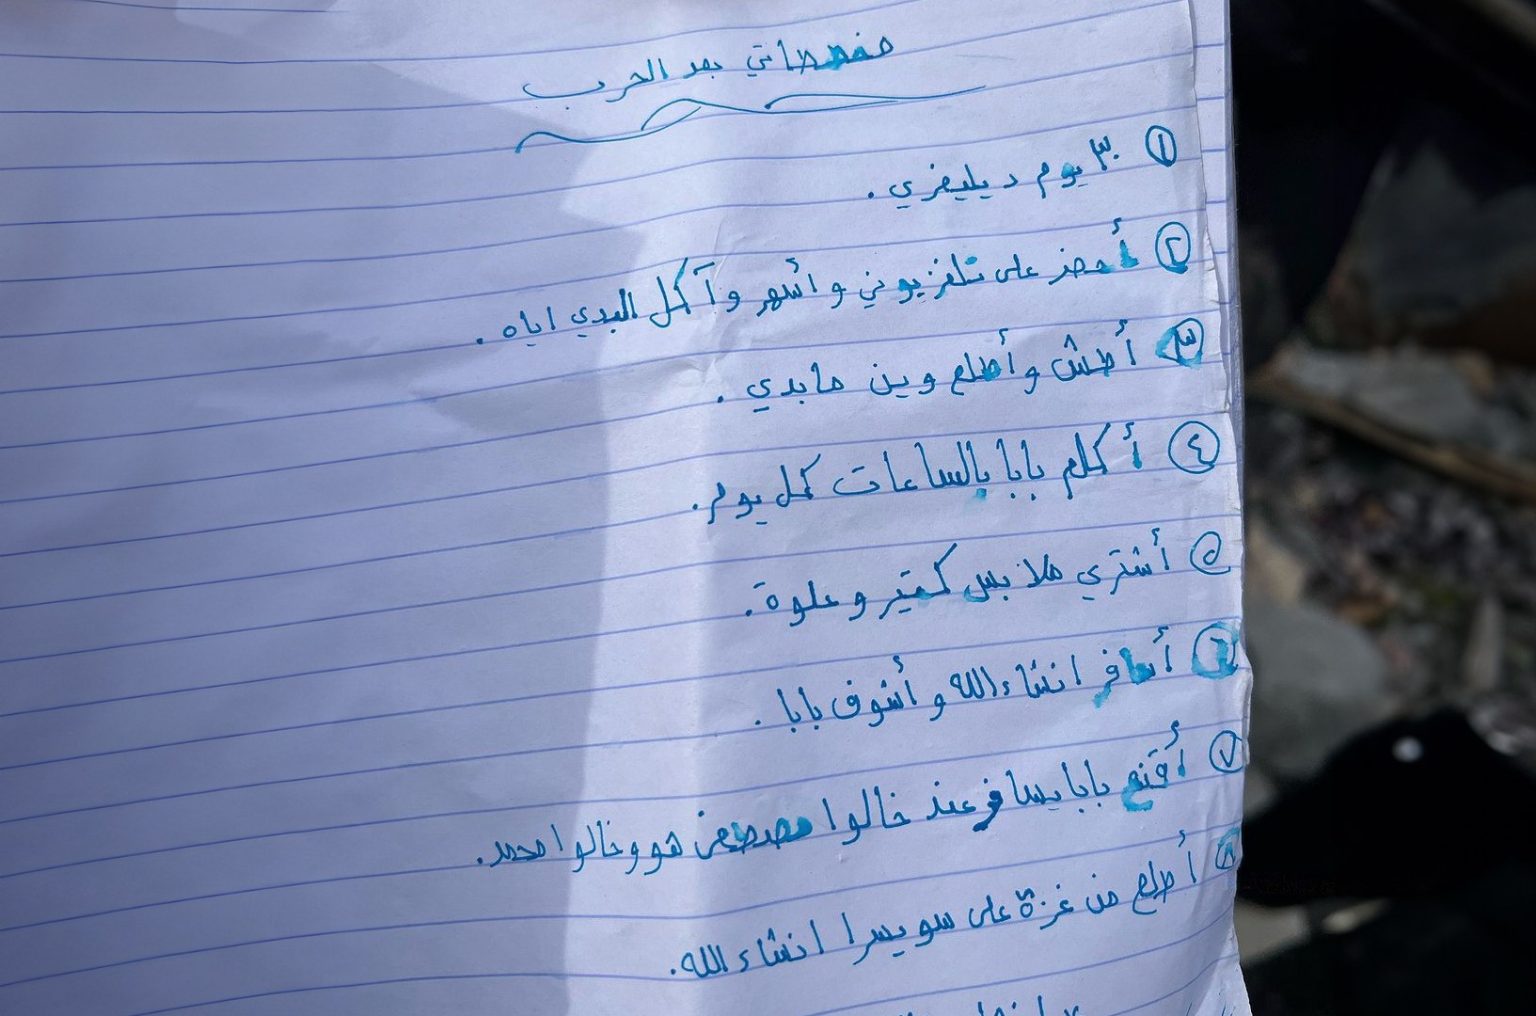 مخططاتي بعد الحرب
١ ٣٠ يوم ديليفري.
٢ أحضر على تلفزيوني وأسهر وآكل البدي اياه.
٣ أطش وأطلع وين مابدي.
٤ أكلم بابا بالساعات كل يوم.
٥ أشتري ملابس كتير وعلوة.
٦ أسافر انشاءالله وأشوف بابا.
٧ أقنع بابا يسافر عند خالوا مصطفى هو وخالوا محمد.
٨ أطلع من غزة على سويسرا انشاء الله.